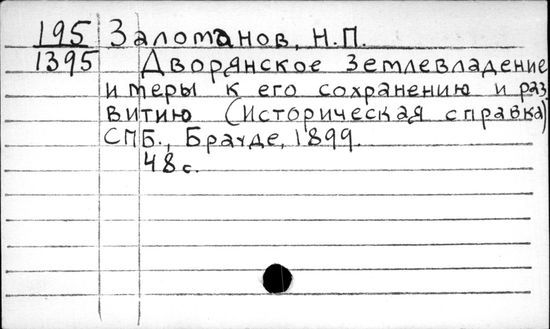 195 Заломанов, Н.П.
1395 Дворянское землевладение
и меры к его сохранению и раз
витию (историческая справка)
СПБ., Брауде, 1899.
48 с.